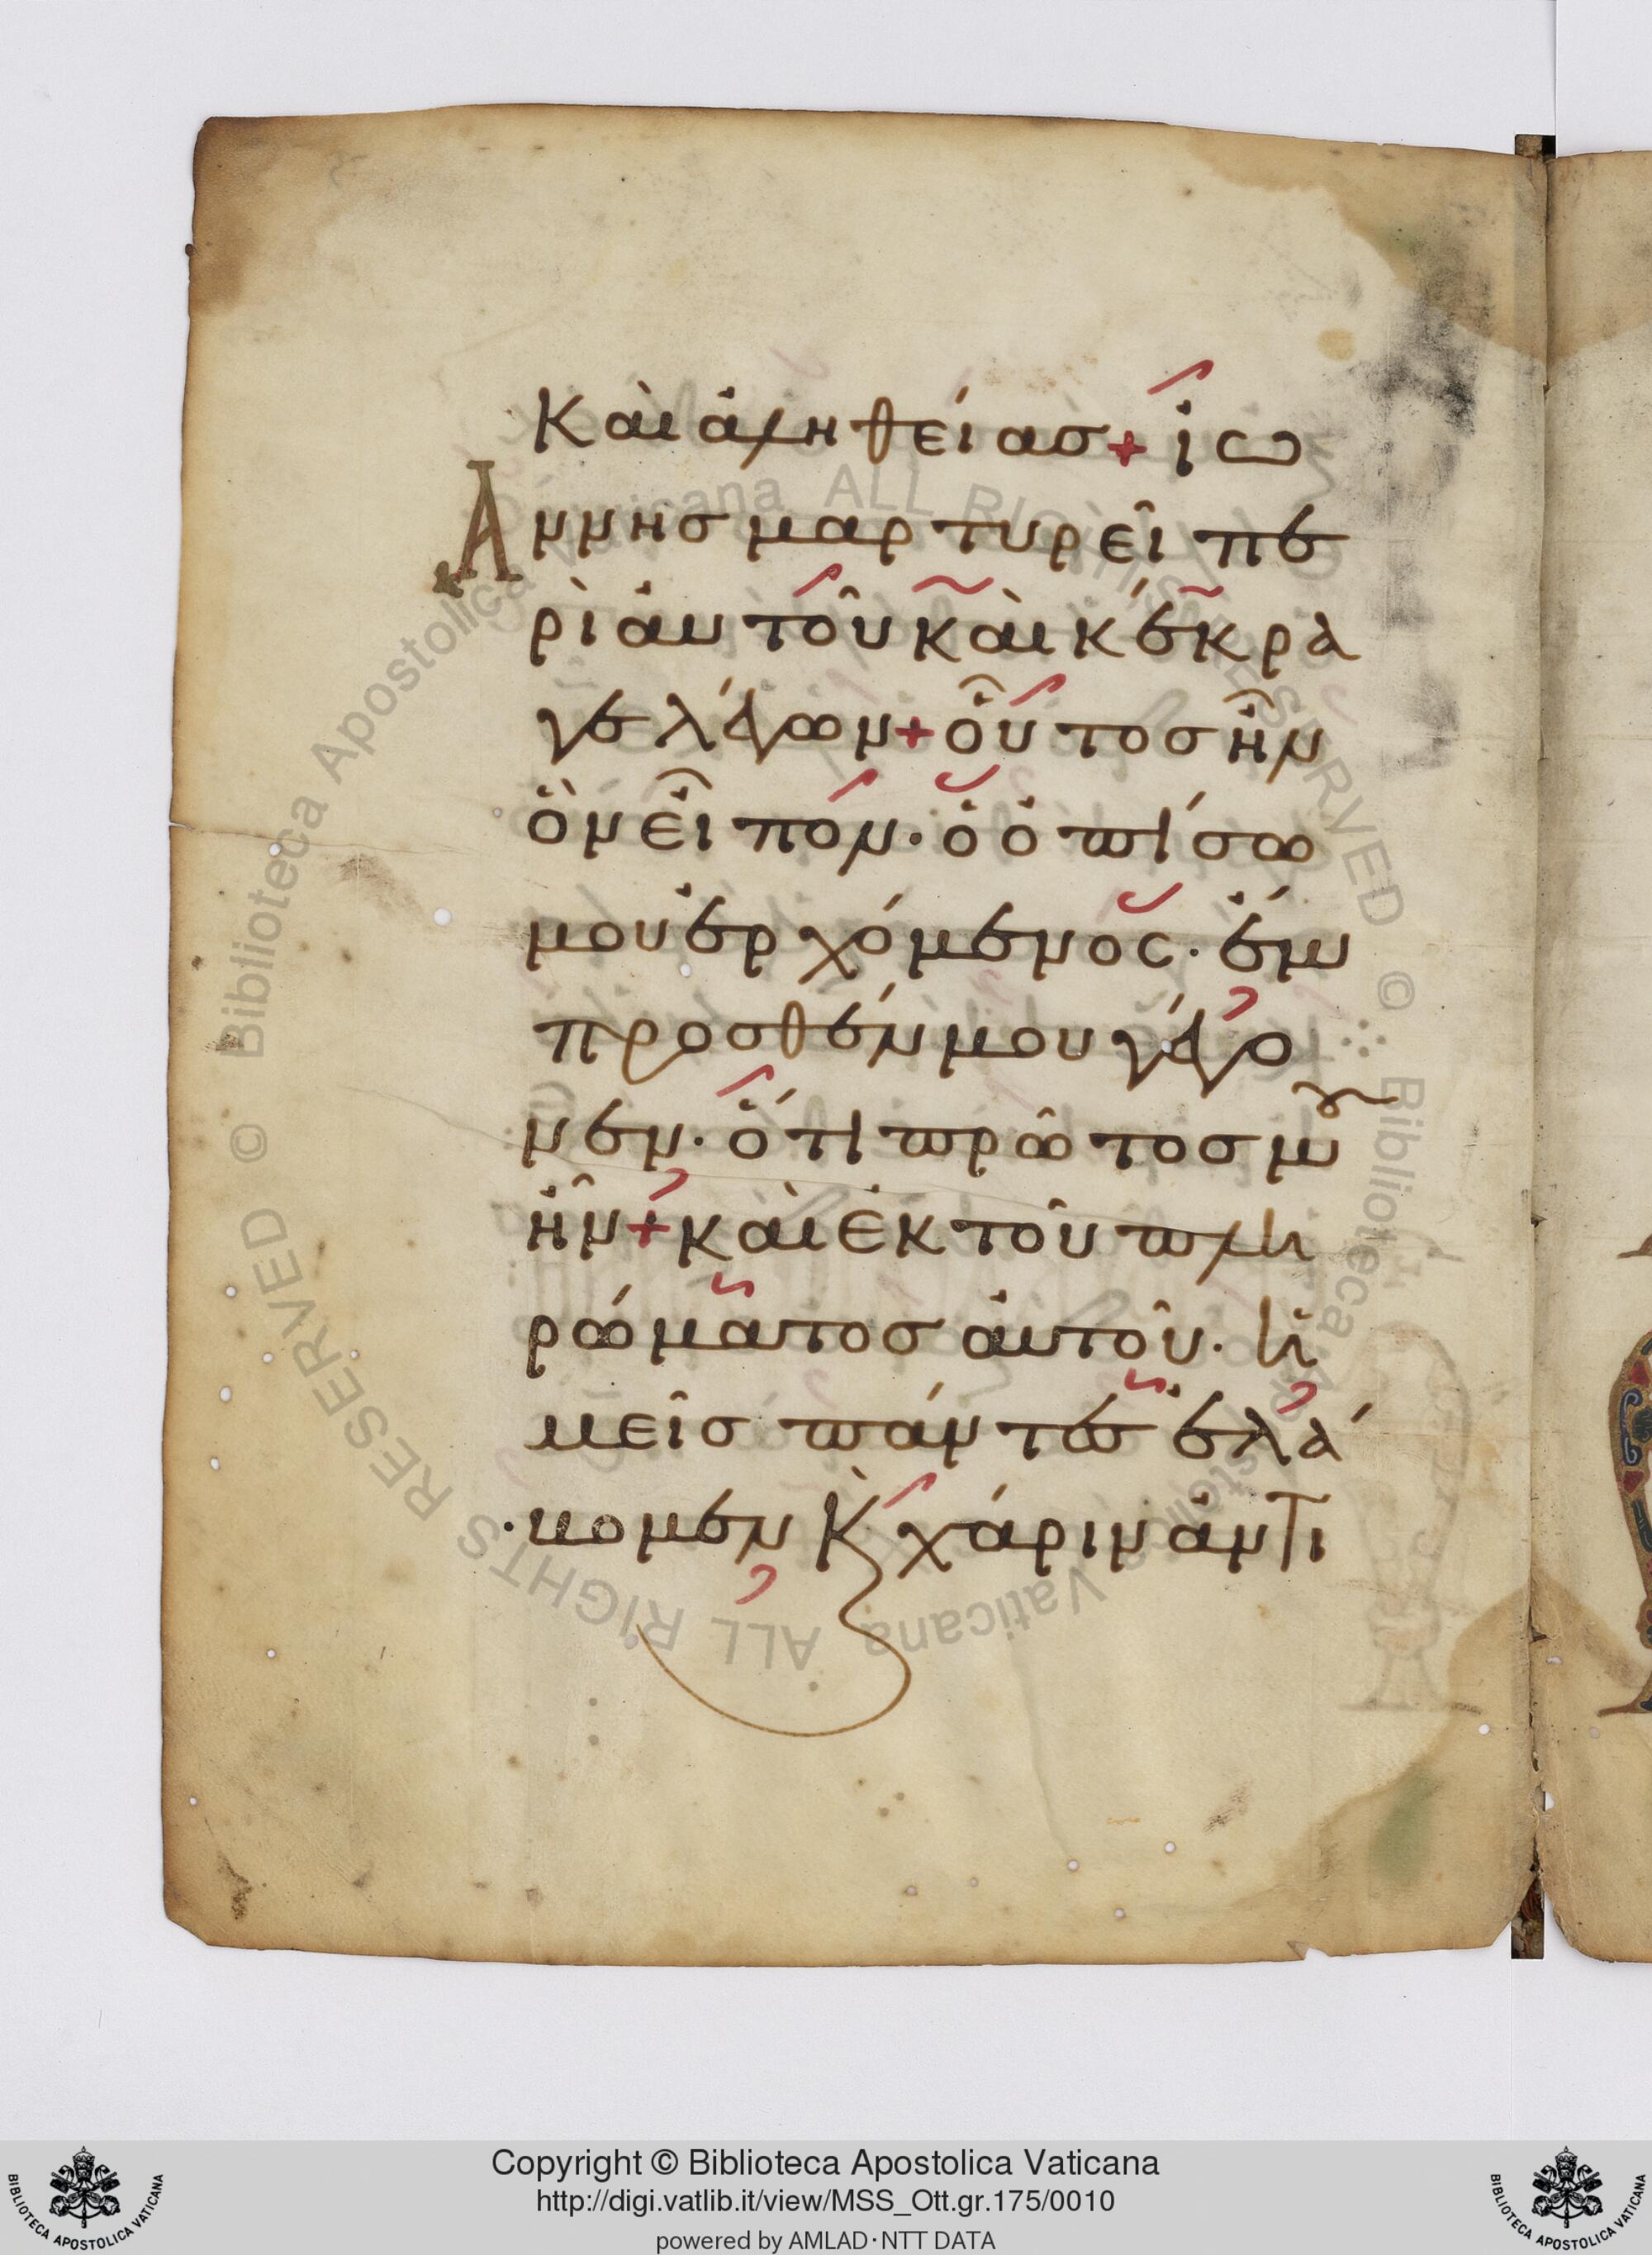 Καὶ ἀληθείας + ἰω
Αννης μαρτυρεῖ πε
ρὶ αὐτοῦ καὶ κέκρα
γε λέγων + οὗτος ἦν
ὃν εἶπον· ὁ ὀπίσω
μου ἐρχόμενος· ἔμ
προσθέν μου γέγο
νεν· ὅτι πρῶτος μου
ἦν + καὶ ἐκ τοῦ πλη
ρώματος αὐτοῦ· ἡ
μεῖς πάντες ἐλά
βομεν κ̀ χάριν ἀντι
© Biblioteca Apostolica Vaticana ALL RIGHTS RESERVED © Biblioteca Apostolica Vaticana ALL RIGHTS RESERVED
Copyright © Biblioteca Apostolica Vaticana
http://digi.vatlib.it/view/MSS_Ott.gr.175/0010
powered by AMLAD·NTT DATA
BIBLIOTECA APOSTOLICA VATICANA
BIBLIOTECA APOSTOLICA VATICANA